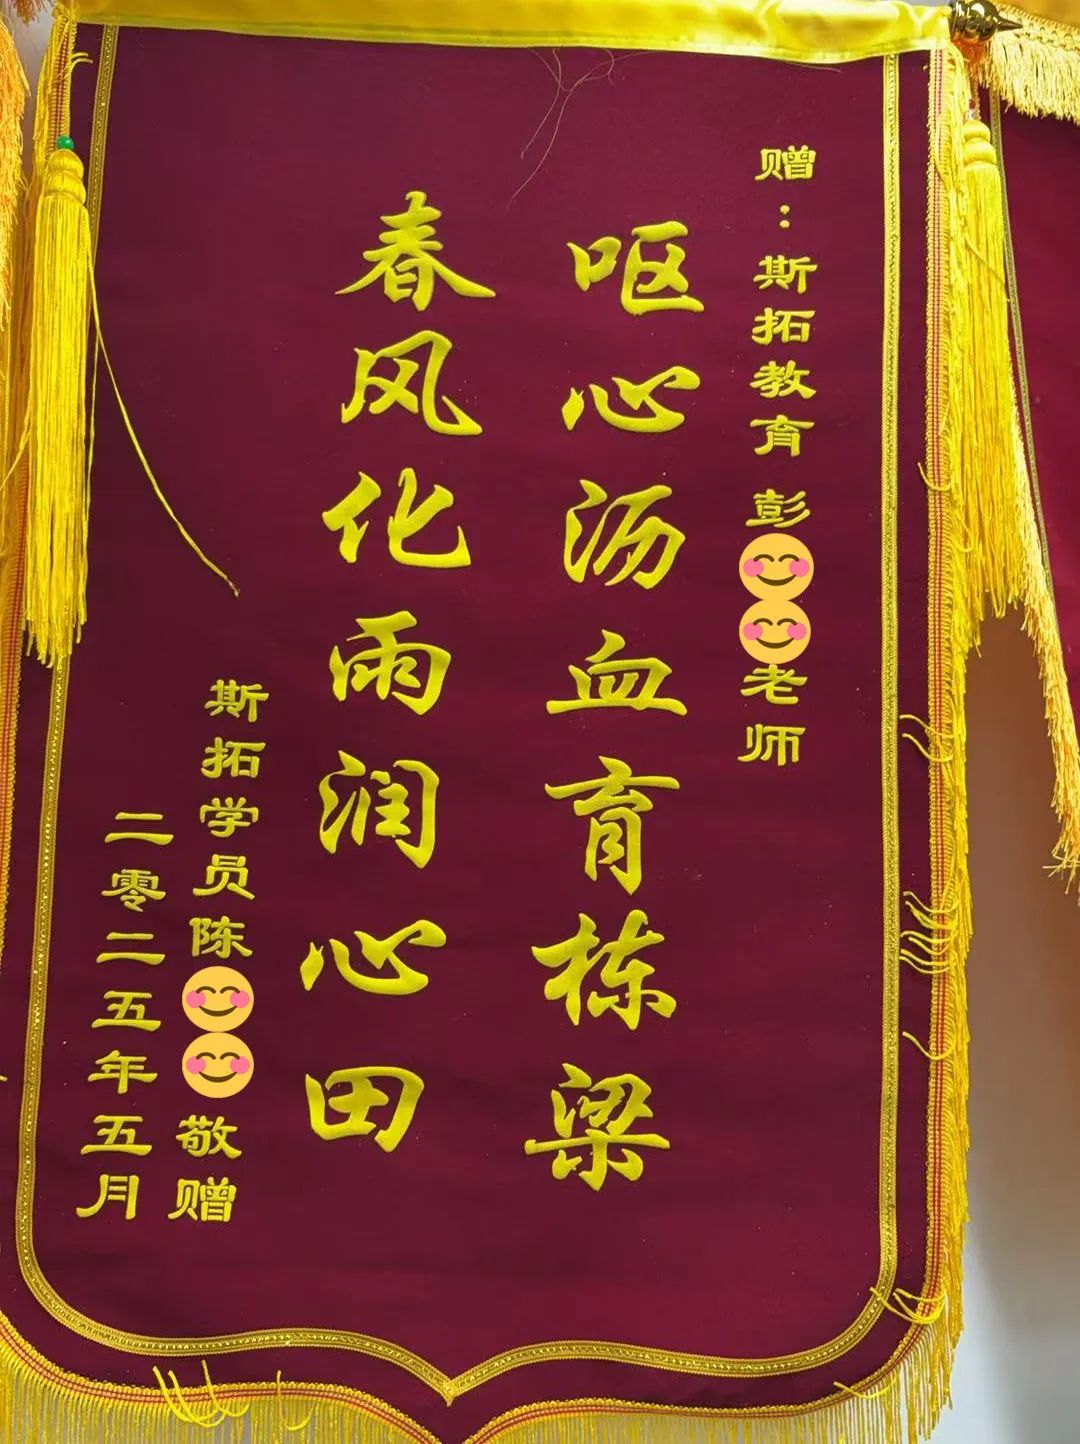 赠：斯拓教育 彭😊😊老师
呕心沥血育栋梁
春风化雨润心田
斯拓学员陈😊😊敬赠
二零二五年五月